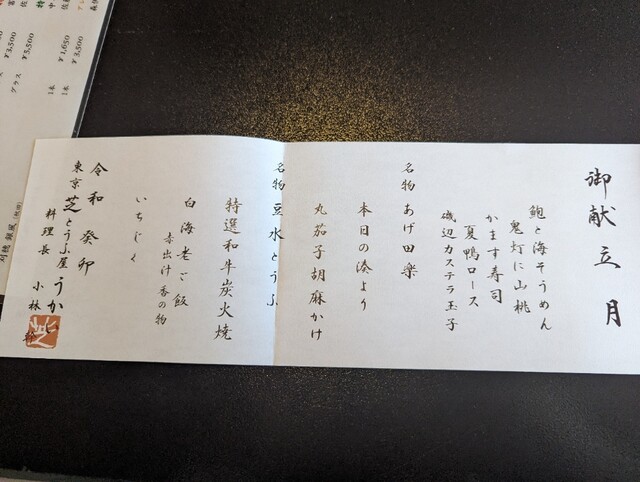 御献立 月
鮑と海そうめん
鬼灯に山桃
かます寿司
夏鴨ロース
磯辺カステラ玉子
名物 あげ田楽
本日の湊より
丸茄子胡麻かけ
名物 豆水とうふ
特選和牛炭火焼
白海老ご飯
赤出汁 香の物
いちじく
令和 癸卯
東京 芝 とうふ屋 うかい
料理長 小林
¥3,500
グラス ¥5,500
1本 ¥1,650
1本 ¥3,500